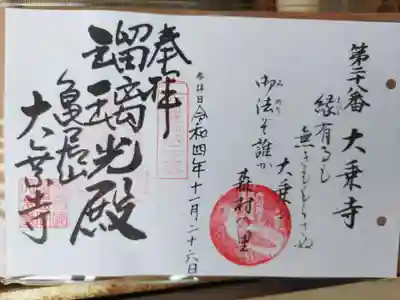 第二十八番 大乗寺
縁有るも
無きももらさぬ
大乗
御法ぞ誰か
森村の里
参拝日 令和四年十一月二十六日
奉拝
瑠璃光殿
亀居山
大乗寺